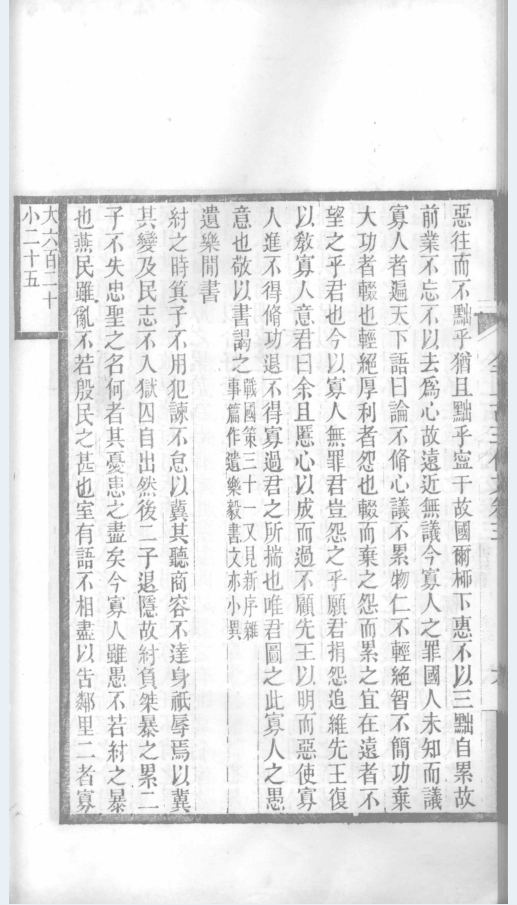 惡往而不黜乎猶且黜乎寍于故國爾栁下惠不以三黜自累故
前業不忘不以去爲心故遠近無議今寡人之罪國人未知而議
寡人者遍天下語曰論不脩心議不累物仁不輕絕智不簡功棄
大功者輟也輕絕厚利者怨也輟而棄之怨而累之宜在遠者不
望之乎君也今以寡人無罪君豈怨之乎願君捐怨追維先王復
以敎寡人意君曰余且慝心以成而過不顧先王以明而惡使寡
人進不得脩功退不得寡過君之所揣也唯君圖之此寡人之愚
意也敬以書謁之戰國策三十一又見新序雜
事篇作遺樂毅書文亦小異
遺樂閒書
紂之時箕子不用犯諫不怠以冀其聽商容不達身祇辱焉以冀
其變及民志不入獄囚自出然後二子退隱故紂負桀暴之累二
子不失忠聖之名何者其憂患之盡矣今寡人雖愚不若紂之暴
也燕民雖亂不若殷民之甚也室有語不相盡以告鄰里二者寡
大六百二十
小二十五